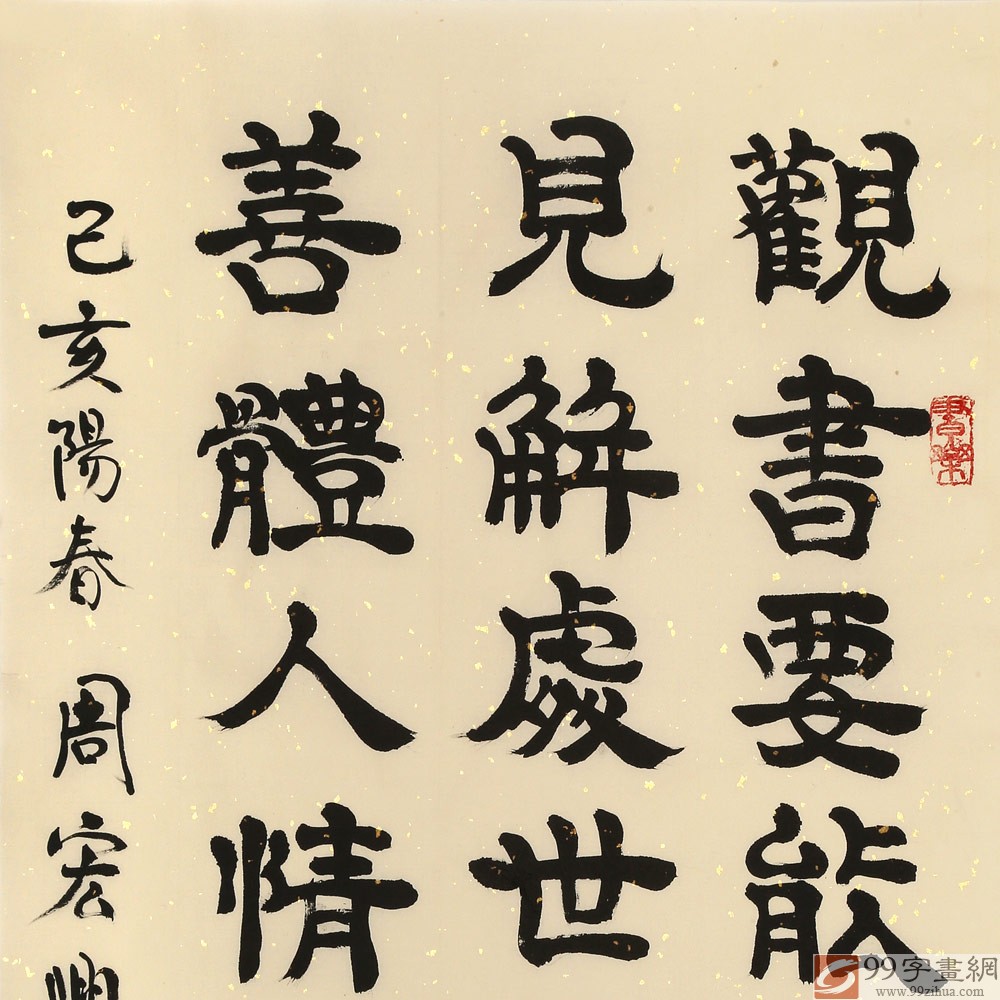 觀書要能
見解處世
善體人情
己亥陽春 周宏興
書樂
99字畫網
www.99zihua.com